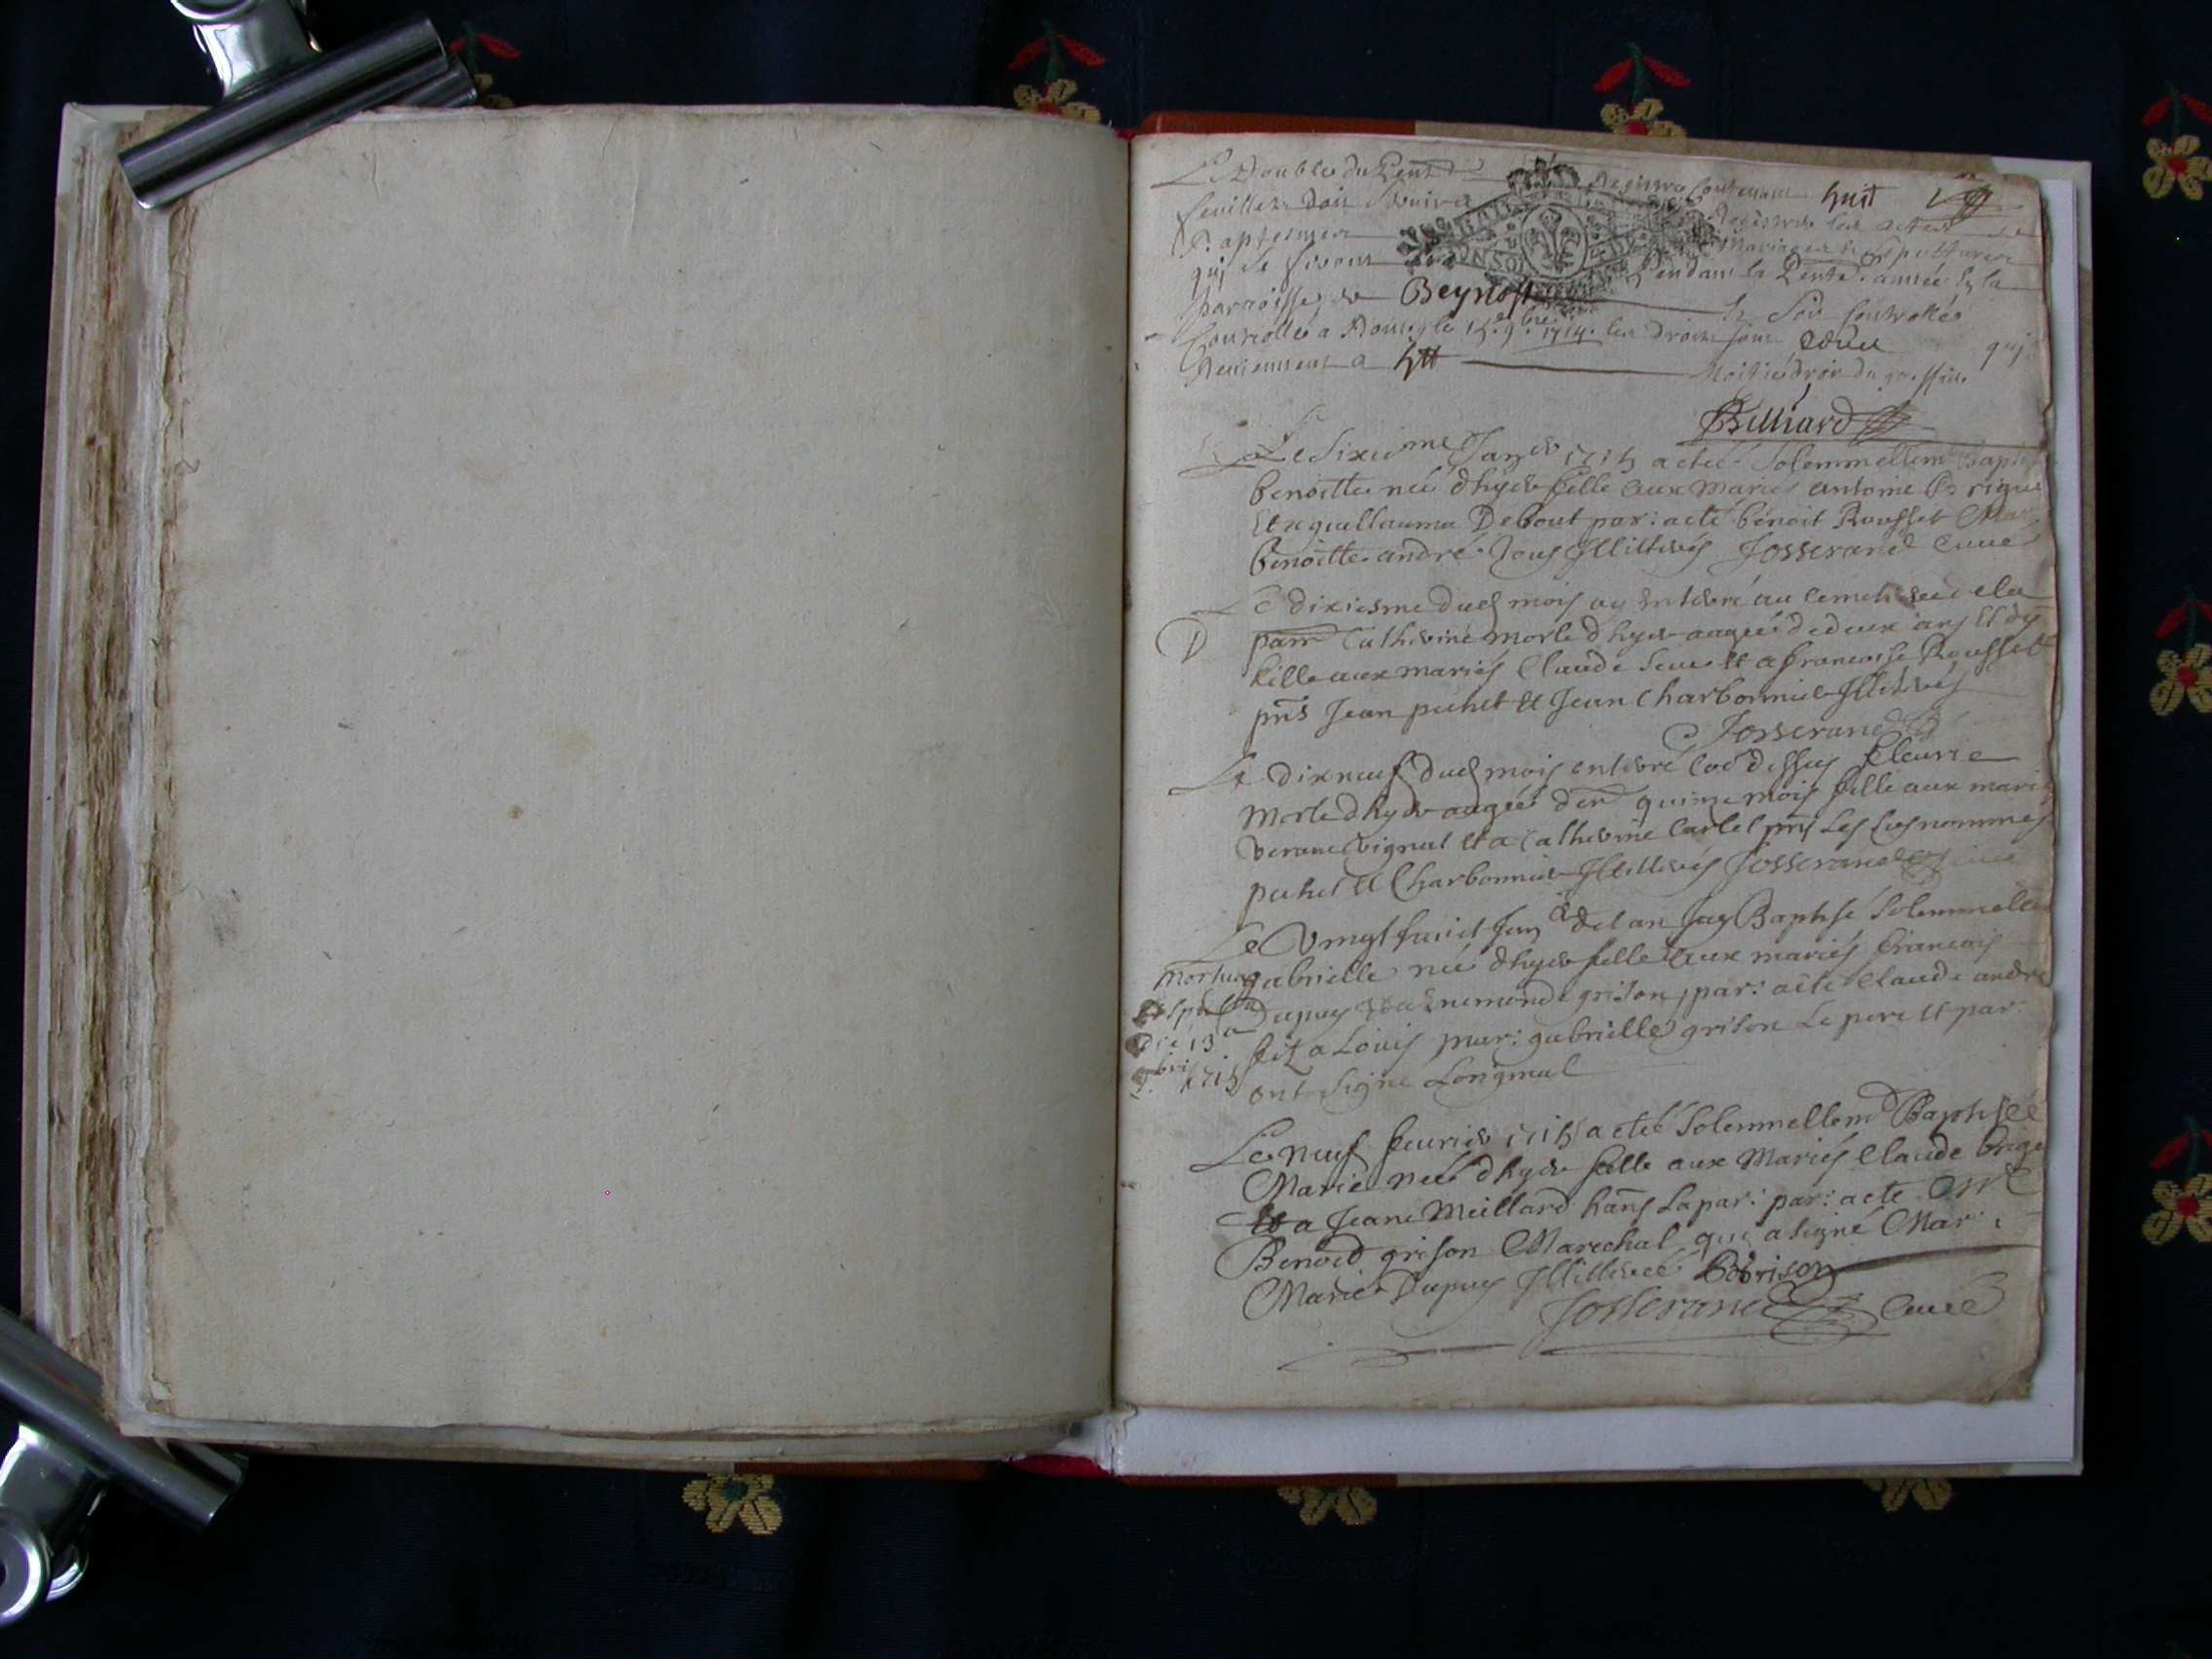 Le Double du Pent Registre Contenant huit
feuillets Doit Servir a Registrer les actes de
Baptesmes Mariages & Sepultures
qui se feront Pendant la Pente. année En la
parroisse de Beynost
Controllé a le 15e. 9bre. 1714. les droits sont
Reviennent a qui
Moitié droit du greffier
Billiard
Le Sixieme Janer 1715 a eté Solemnellemt
benoitte neé dhyer fille aux Mariés antoine
guillauma Debout par: a eté benoit Rousset Mar
benoitte andré Tous Illitterés Josserand Curé
Le dixiesme dud mois ay enterré au cemetiere de la
D parr Catherine morte dhyer aageé de deux ans et dy
fille aux mariés Claude et a francoise Rousset
pns Jean puhet et Jean Charbonnier Illiterés
Josserand
Le dixneuf dud mois enterré co dessus fleurie
morte dhyer aageé quinze mois fille aux mariés
vignat et a Catherine Cartel pns Les susnommés
puhet et Charbonnier Illitterés Josserand
Le vingt huict Janer del an Jay Baptisé Solemnellemt
mortua gabrielle neé dhyer fille aux mariés francois
Dupuy et a enemonde grison, par: a eté Claude andré
die 13a fils a Louis mar: gabrielle grison Le pere et par:
bris 1715 ont signé Longmal
Le neuf feurier 1715 a eté Solemnellemt Baptiseé
Marie neé dhyer fille aux Mariés Claude
et a Jeane Meillard hans La par: par: a eté Mre
Benoid grison Marechal qui a signé Mar:
Marie Dupuy Illitereé B grison
Josserand Curé